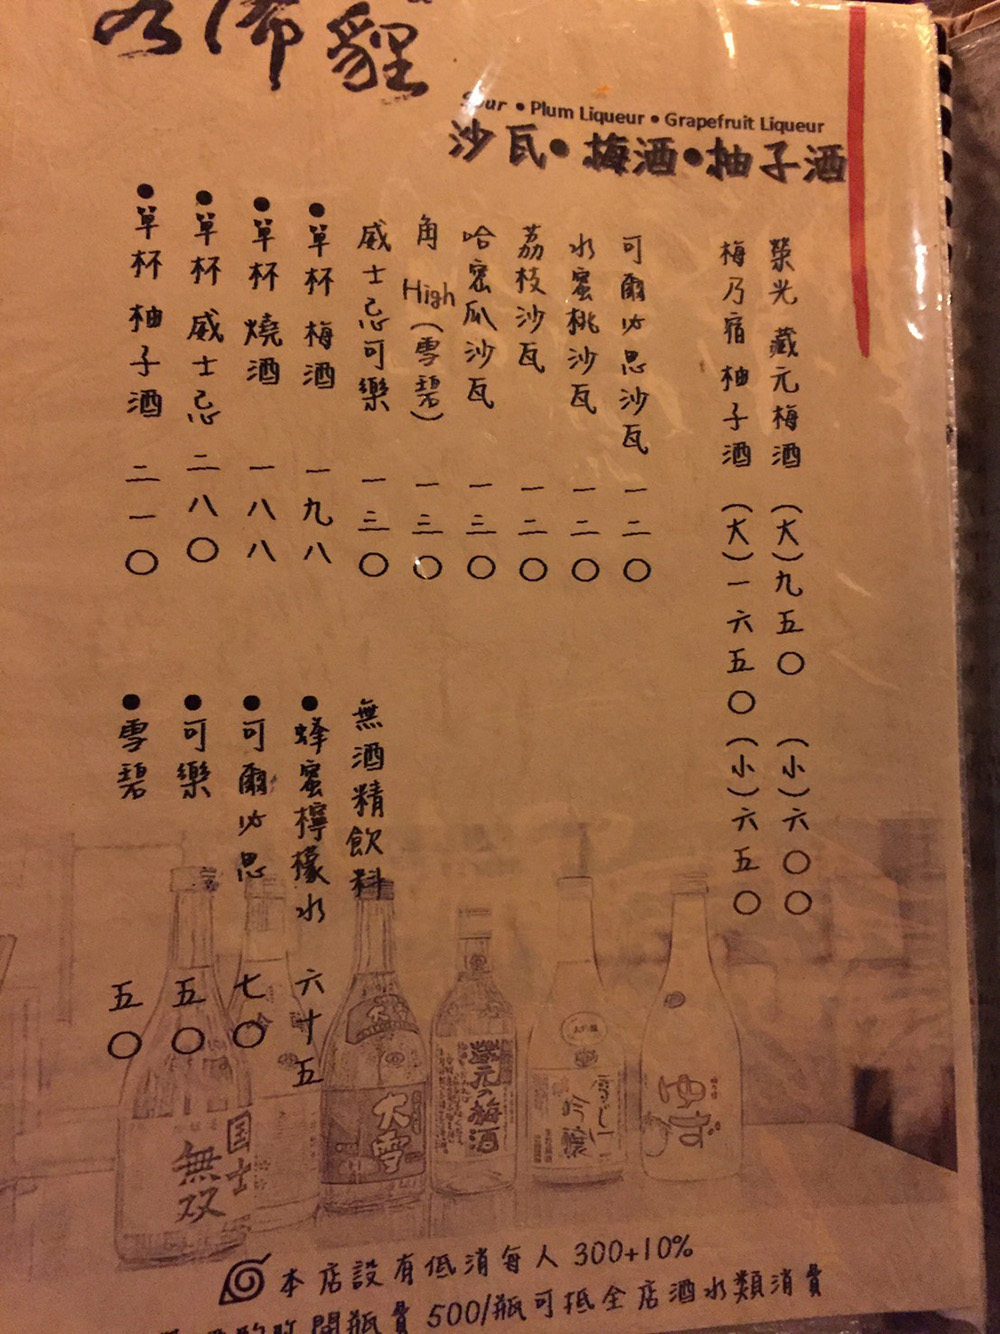 狸
Sour • Plum Liqueur • Grapefruit Liqueur
沙瓦•梅酒•柚子酒
榮光 藏元梅酒 (大)九五〇 (小)六〇〇
梅乃宿 柚子酒 (大)一六五〇 (小)六五〇
可爾必思沙瓦 一二〇
水蜜桃沙瓦 一二〇
荔枝沙瓦 一二〇
哈密瓜沙瓦 一三〇
角 High(雪碧) 一三〇
威士忌可樂 一三〇
•單杯 梅酒 一九八
•單杯 燒酒 一八八
•單杯 威士忌 二八〇
•單杯 柚子酒 二一〇
無酒精飲料
•蜂蜜檸檬水 六十五
•可爾必思 七〇
•可樂 五〇
•雪碧 五〇
国士
無双
大雪
蔵元の梅酒
吟醸
ゆず
本店設有低消每人 300+10%
開瓶費 500/瓶可抵全店酒水類消費